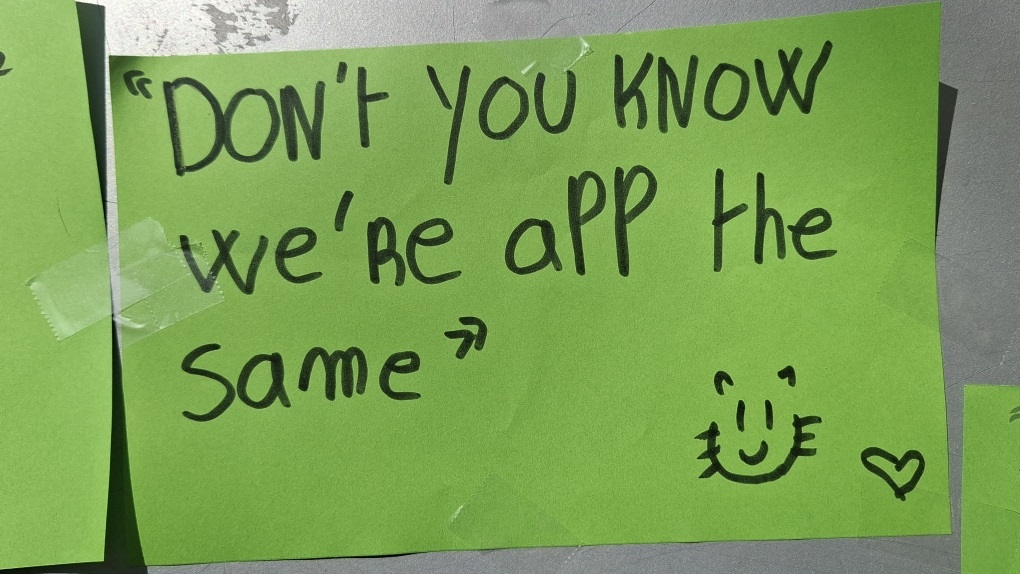 "DON't YOU KNOW
we're aPP the
same"